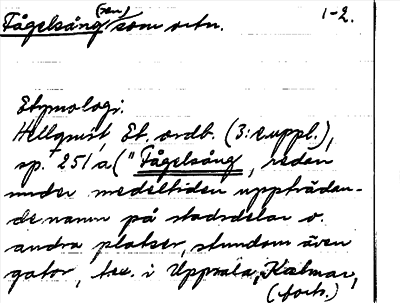 1-2.
Fågelsång(en) som ortn.
Etymologi.
Hellquist, Et. ordb. (3:e uppl.),
sp. 251 a ("Fågelsång, redan
under medeltiden uppträdan-
de namn på stadsdelar o.
andra platser, stundom även
gator, t.ex. i Uppsala, Kalmar,
(forts.)